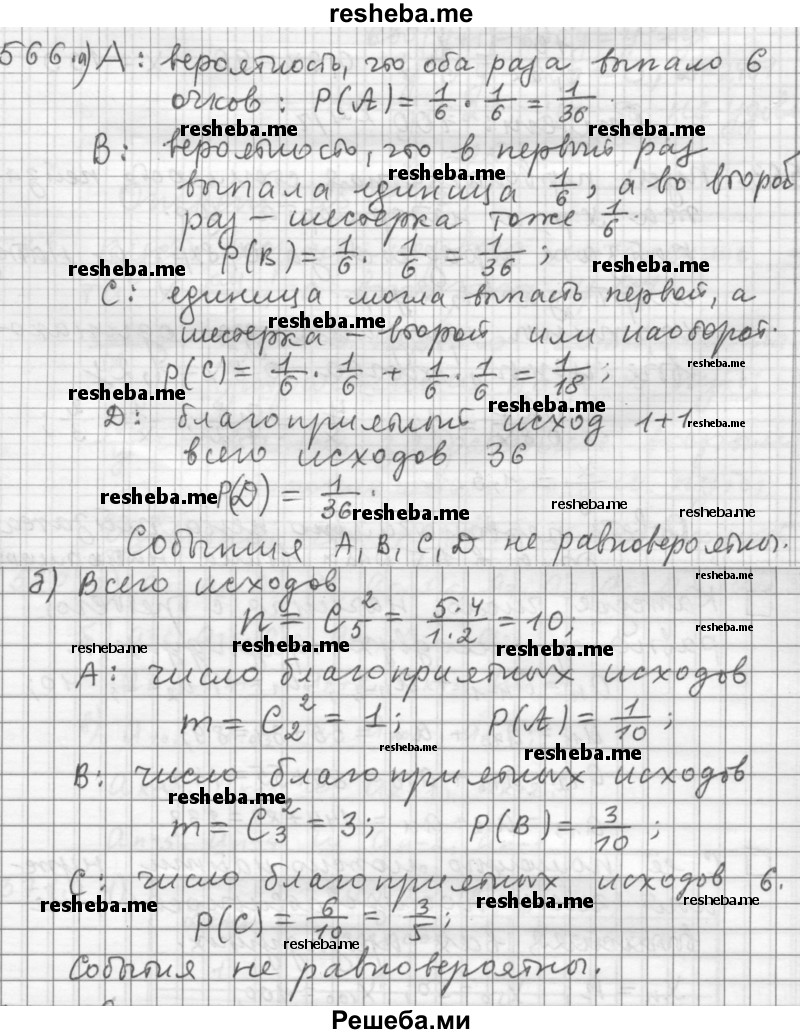 resheba.me
566.а) А: вероятность, что оба раза выпало 6
очков: P(A) = 1/6 · 1/6 = 1/36.
resheba.me resheba.me
В: вероятность, что в первый раз
resheba.me
выпала единица 1/6, а во второй
раз – шестерка тоже 1/6.
P(B) = 1/6 · 1/6 = 1/36;
resheba.me resheba.me
С: единица могла выпасть первой, а
resheba.me
шестерка – второй или наоборот.
resheba.me
P(C) = 1/6 · 1/6 + 1/6 · 1/6 = 1/18;
resheba.me resheba.me
D: благоприятный исход 1+1
resheba.me
всего исходов 36
resheba.me P(D) = 1/36.
resheba.me resheba.me
События A, B, C, D не равновероятны.
resheba.me
б) Всего исходов
n = C₅² = 5·4/1·2 = 10;
resheba.me
resheba.me resheba.me resheba.me
А: число благоприятных исходов
m = C₂² = 1; P(A) = 1/10;
resheba.me resheba.me
В: число благоприятных исходов
resheba.me
m = C₃² = 3; P(B) = 3/10;
С: число благоприятных исходов 6.
resheba.me resheba.me resheba.me
P(C) = 6/10 = 3/5;
resheba.me
События не равновероятны.
Решеба.ми